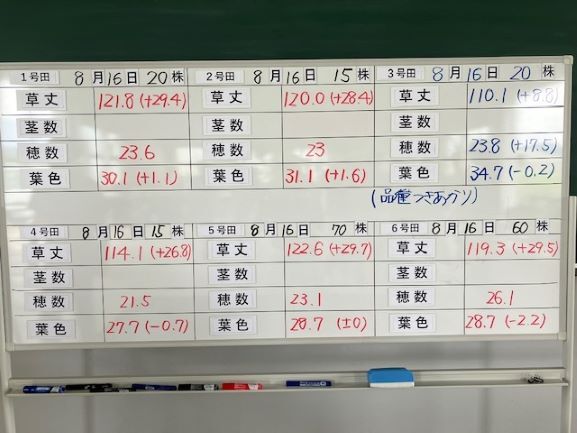 1号田 8月16日 20株
草丈 121.8 (+29.4)
茎数
穂数 23.6
葉色 30.1 (+1.1)
2号田 8月16日 15株
草丈 120.0 (+28.4)
茎数
穂数 23
葉色 31.1 (+1.6)
3号田 8月16日 20株
草丈 110.1 (+8.8)
茎数
穂数 23.8 (+17.5)
葉色 34.7 (-0.2)
(品種つきあかり)
4号田 8月16日 15株
草丈 114.1 (+26.8)
茎数
穂数 21.5
葉色 27.7 (-0.7)
5号田 8月16日 70株
草丈 122.6 (+29.7)
茎数
穂数 23.1
葉色 28.7 (±0)
6号田 8月16日 60株
草丈 119.3 (+29.5)
茎数
穂数 26.1
葉色 28.7 (-2.2)